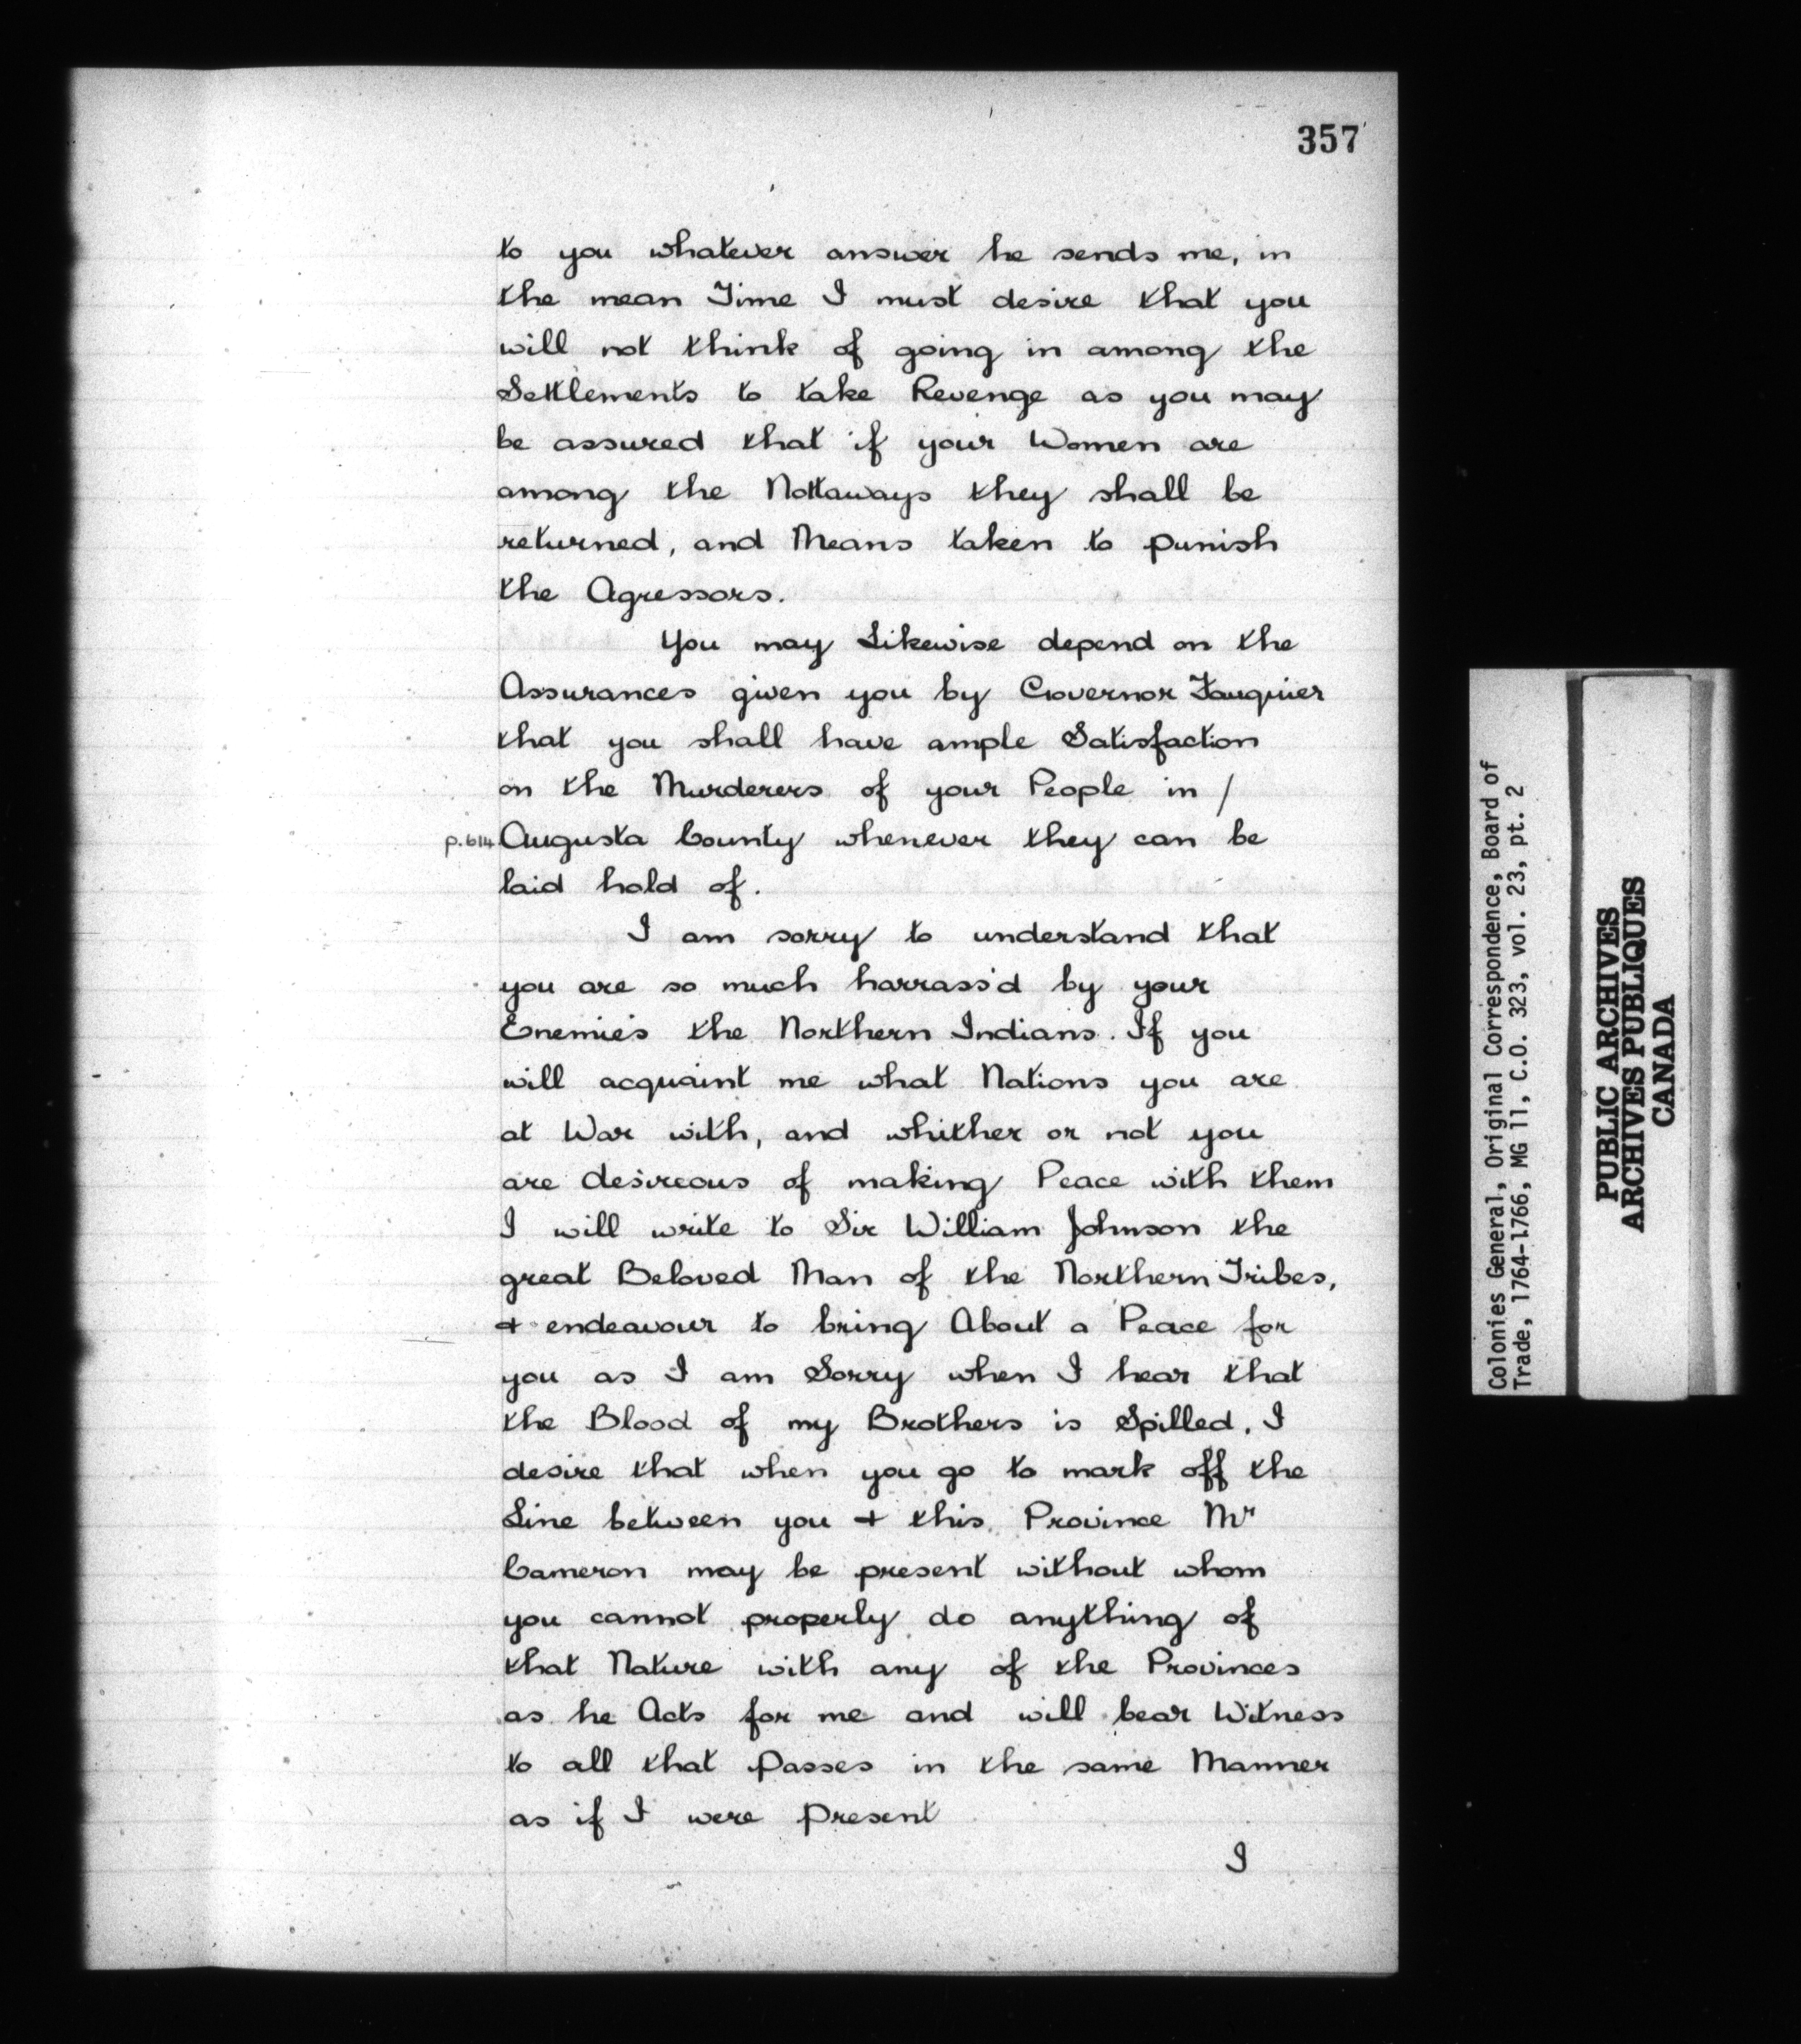 357
to you whatever answer he sends me, in
the mean Time I must desire that you
will not think of going in among the
Settlements to take Revenge as you may
be assured that if your Women are
among the Nottaways they shall be
returned, and Means taken to punish
the Agressors.
You may Likewise depend on the
Assurances given you by Governor Fauquier
that you shall have ample Satisfaction
on the Murderers of your People in /
p.614 Augusta County whenever they can be
laid hold of.
I am sorry to understand that
you are so much harrass'd by your
Enemie's the Northern Indians. If you
will acquaint me what Nations you are
at War with, and whither or not you
are desireous of making Peace with them
I will write to Sir William Johnson the
great Beloved Man of the Northern Tribes,
& endeavour to bring About a Peace for
you as I am Sorry when I hear that
the Blood of my Brothers is Spilled. I
desire that when you go to mark off the
Line between you & this Province Mr
Cameron may be present without whom
you cannot properly do anything of
that Nature with any of the Provinces
as he Acts for me and will bear Witness
to all that Passes in the same Manner
as if I were Present
I
Colonies General, Original Correspondence, Board of
Trade, 1764-1766, MG 11, C.O. 323, vol. 23, pt. 2
PUBLIC ARCHIVES
ARCHIVES PUBLIQUES
CANADA